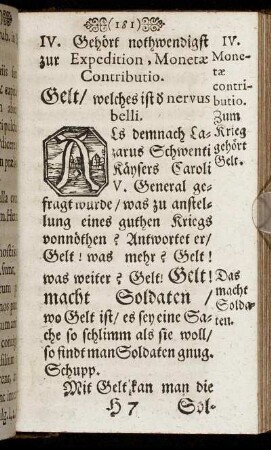 (181)
IV. Gehört nothwendigst
zur Expedition, Monetæ
Contributio.
Gelt / welches ist đ nervus
belli.
Als demnach La-
zarus Schwenti
Käysers Caroli
V. General ge-
fragt wurde / was zu anstel-
lung eines guthen Kriegs
vonnöthen? Antwortet er/
Gelt! was mehr? Gelt!
was weiter? Gelt! Gelt!
macht Soldaten /
wo Gelt ist / es sey eine Sa-
che so schlimm als sie woll /
so findt man Soldaten gnug.
Schupp.
Mit Gelt kan man die
H 7 Sol-
IV.
Mone-
tæ
contri-
butio.
Zum
Krieg
gehört
Gelt.
Das
macht
Solda-
ten.